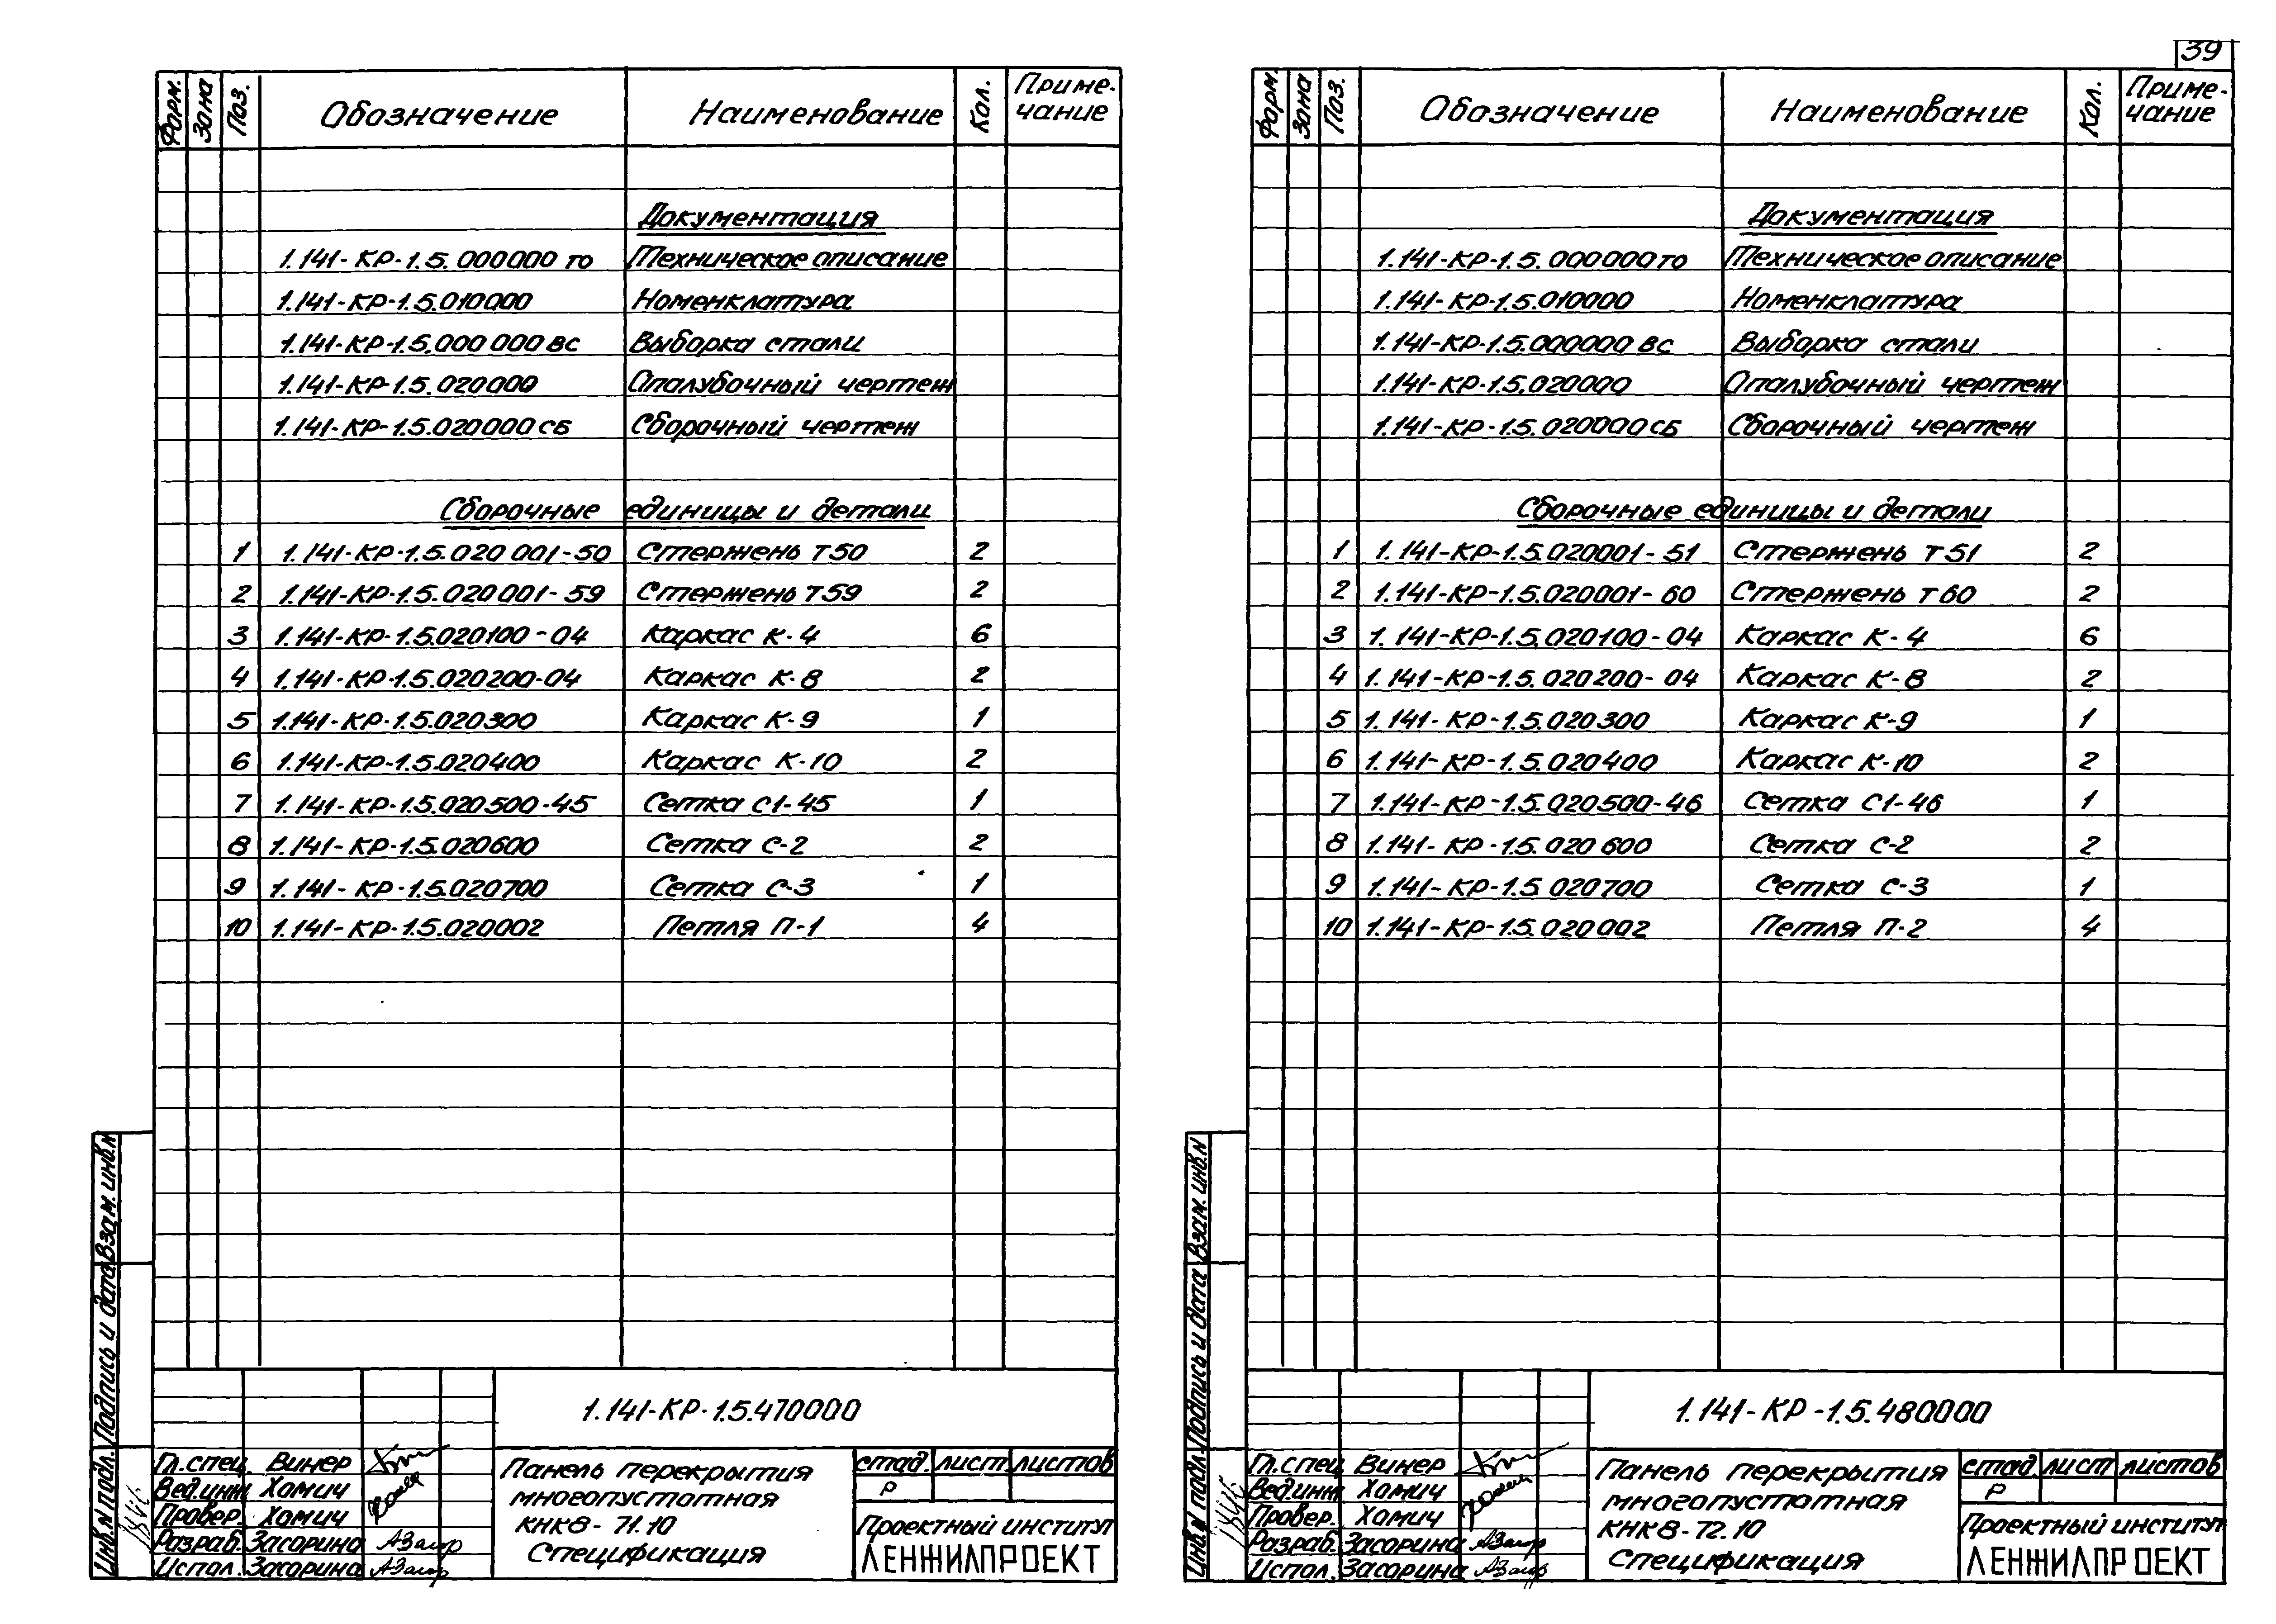 39
Форм. Зона Поз. Обозначение Наименование Кол. Приме-
чание
Документация
1.141-КР-1.5.000000 то Техническое описание
1.141-КР-1.5.010000 Номенклатура
1.141-КР-1.5.000 000 ВС Выборка стали
1.141-КР-1.5.020000 Опалубочный чертеж
1.141-КР-1.5.020000 СБ Сборочный чертеж
Сборочные единицы и детали
1 1.141-КР-1.5.020 001-50 Стержень Т50 2
2 1.141-КР-1.5.020001-59 Стержень Т59 2
3 1.141-КР-1.5.020100-04 Каркас К-4 6
4 1.141-КР-1.5.020200-04 Каркас К-8 2
5 1.141-КР-1.5.020300 Каркас К-9 1
6 1.141-КР-1.5.020400 Каркас К-10 2
7 1.141-КР-1.5.020500-45 Сетка С1-45 1
8 1.141-КР-1.5.020600 Сетка С-2 2
9 1.141-КР-1.5.020700 Сетка С-3 1
10 1.141-КР-1.5.020002 Петля П-1 4
Взам. инв.N
Подпись и дата
Инв.N подл.
1.141-КР-1.5.470000
Гл.спец. Винер
Вед.инж Хомич
Провер. Хомич
Разраб. Засорина
Испол. Засорина
Панель перекрытия
многопустотная
КНК8-71.10
Спецификация
стад. лист листов
Р
Проектный институт
ЛЕНЖИЛПРОЕКТ
Форм. Зона Поз. Обозначение Наименование Кол. Приме-
чание
Документация
1.141-КР-1.5.000000 то Техническое описание
1.141-КР-1.5.010000 Номенклатура
1.141-КР-1.5.000000 ВС Выборка стали
1.141-КР-1.5.020000 Опалубочный чертеж
1.141-КР-1.5.020000 СБ Сборочный чертеж
Сборочные единицы и детали
1 1.141-КР-1.5.020001-51 Стержень Т51 2
2 1.141-КР-1.5.020001-60 Стержень Т60 2
3 1.141-КР-1.5.020100-04 Каркас К-4 6
4 1.141-КР-1.5.020200-04 Каркас К-8 2
5 1.141-КР-1.5.020300 Каркас К-9 1
6 1.141-КР-1.5.020400 Каркас К-10 2
7 1.141-КР-1.5.020500-46 Сетка С1-46 1
8 1.141-КР-1.5.020 600 Сетка С-2 2
9 1.141-КР-1.5.020700 Сетка С-3 1
10 1.141-КР-1.5.020002 Петля П-2 4
Взам. инв.N
Подпись и дата
Инв.N подл.
1.141-КР-1.5.480000
Гл.спец Винер
Вед.инж Хомич
Провер. Хомич
Разраб. Засорина
Испол. Засорина
Панель перекрытия
многопустотная
КНК8-72.10
Спецификация
стад лист листов
Р
Проектный институт
ЛЕНЖИЛПРОЕКТ